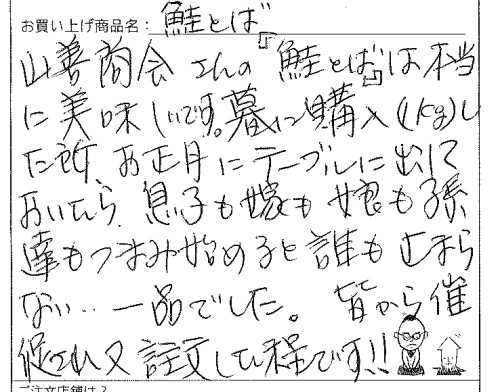 お買い上げ商品名： 鮭とば
山善商会さんの『鮭とば』は本当
に美味しいです。暮に購入(1kg)し
た所、お正月にテーブルに出して
おいたら、息子も嫁も娘も孫
達もつまみ始めると誰も止まら
ない…一品でした。皆から催
促され又註文した程です!!
ご注文店舗は？